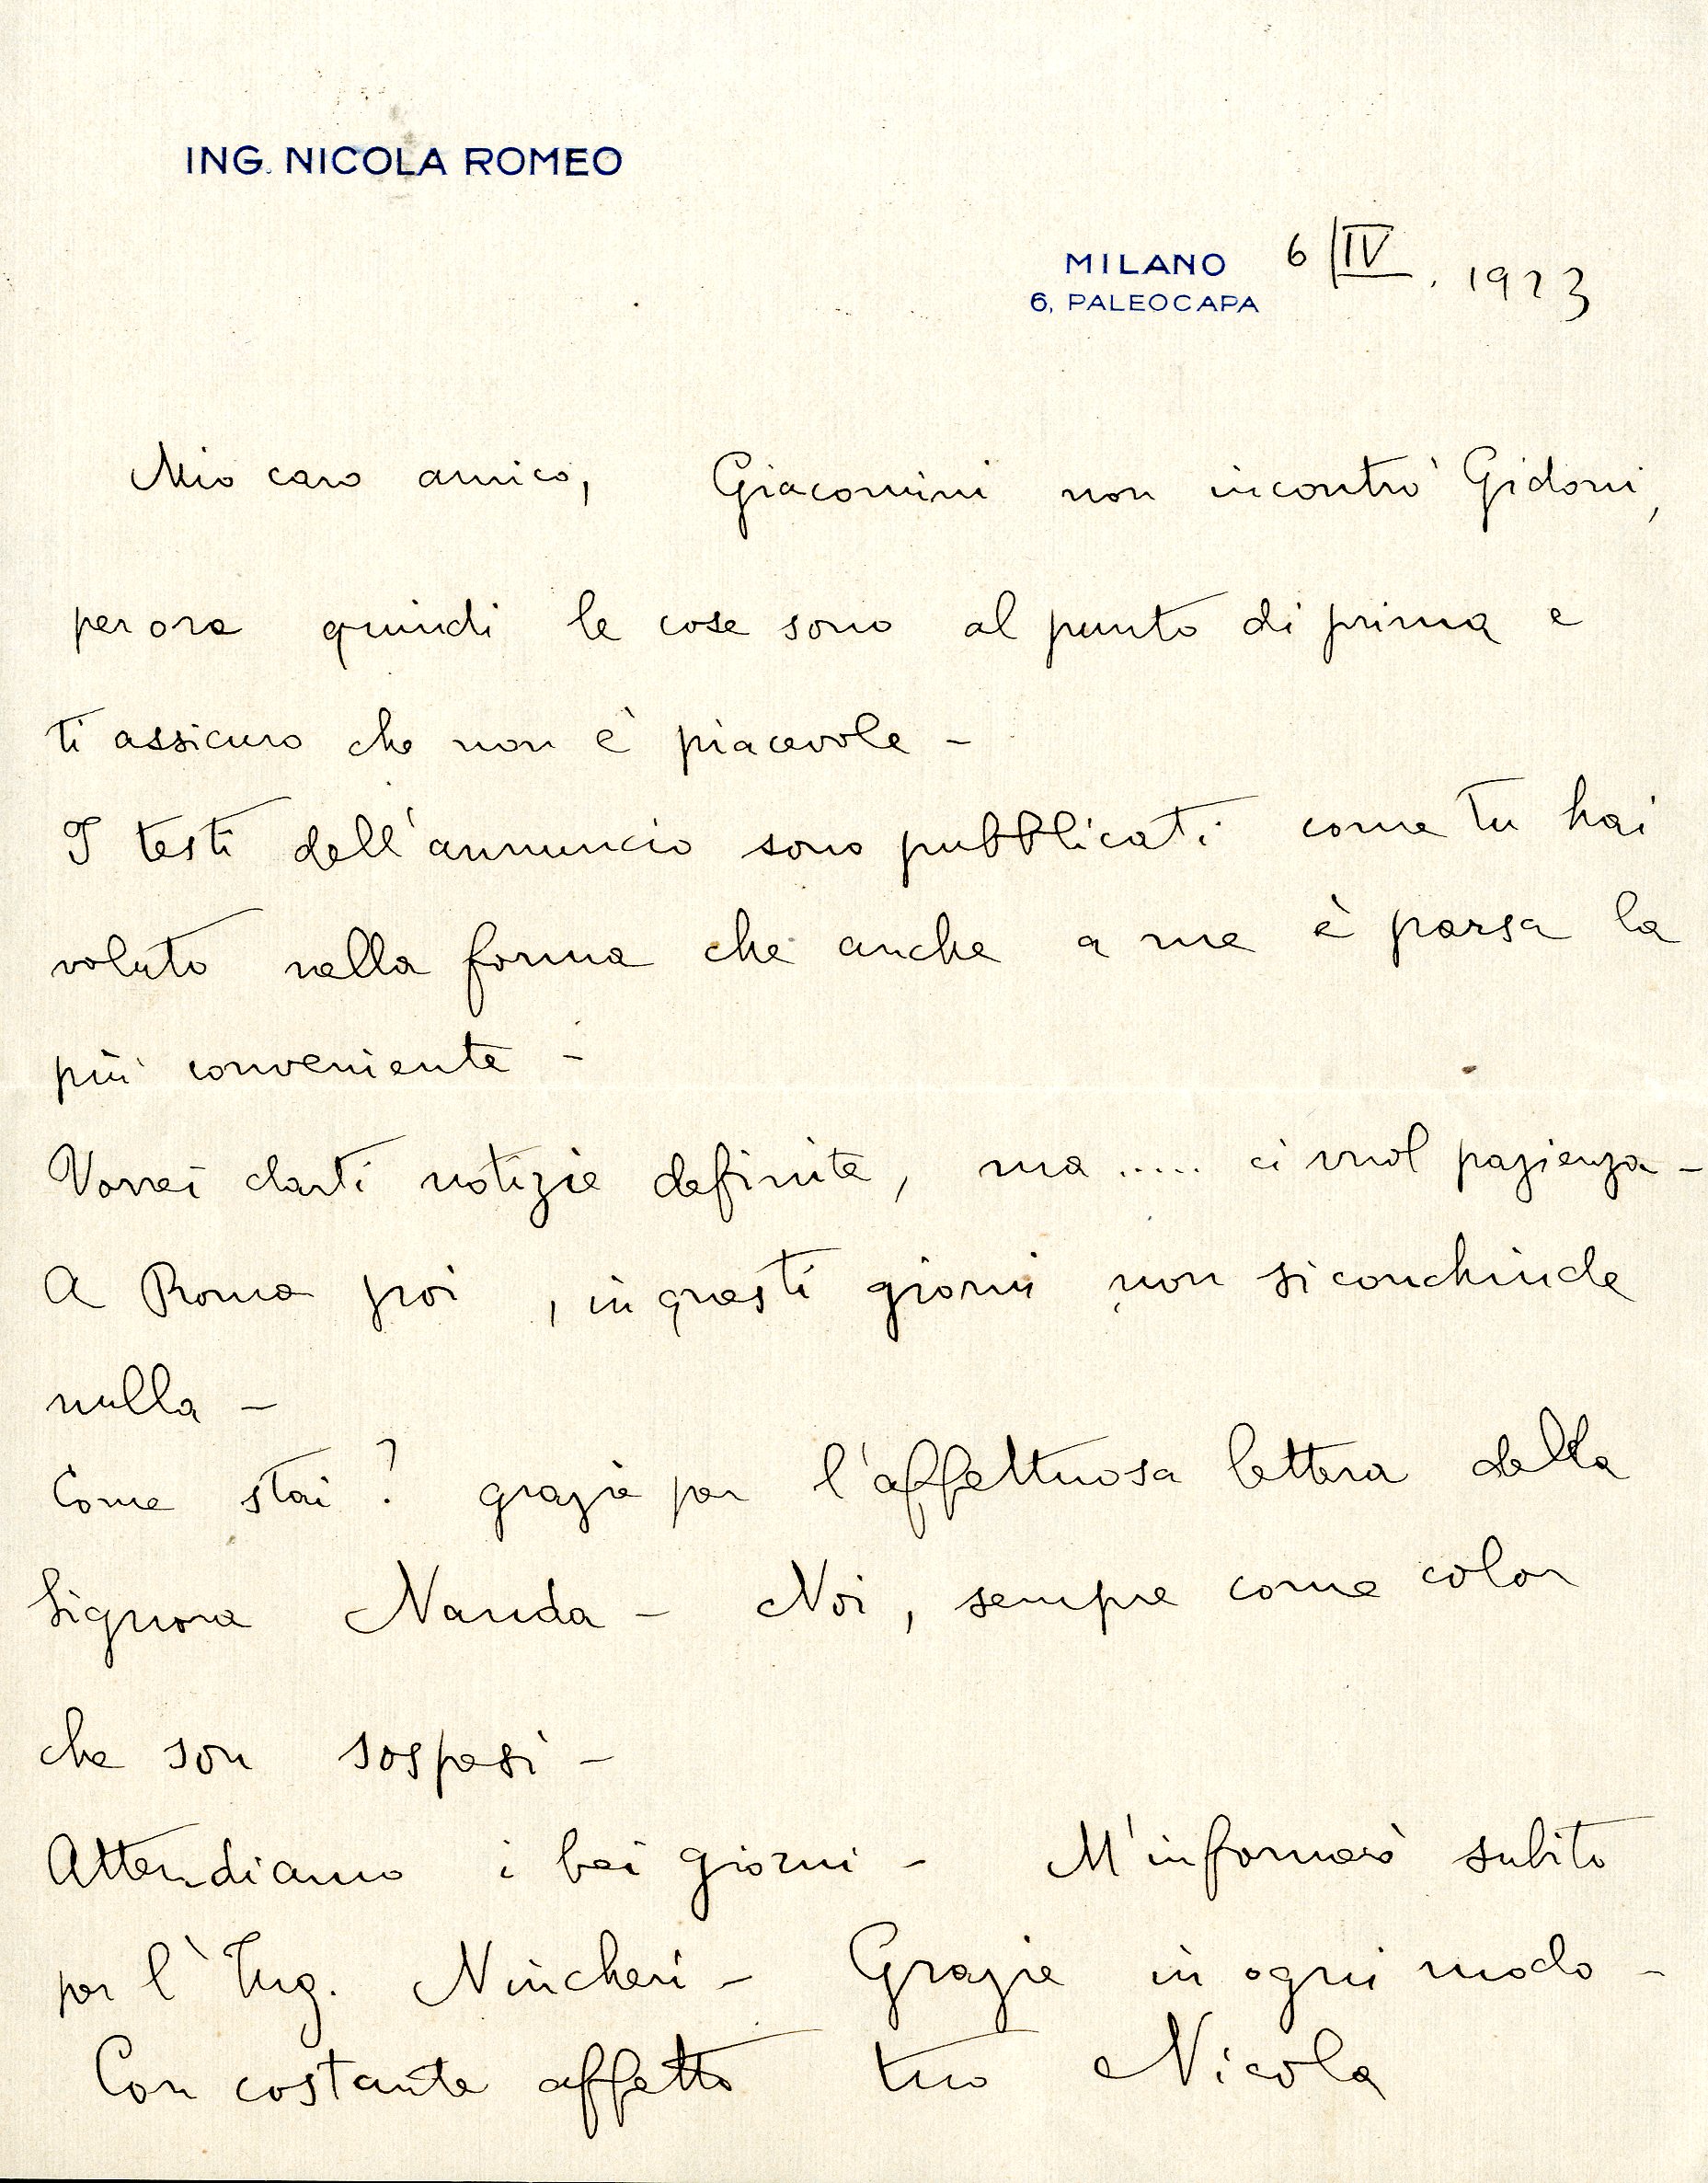 ING. NICOLA ROMEO
MILANO 6/IV. 1923
6, PALEOCAPA
Mio caro amico, Giacomini non incontrò Gidoni,
per ora quindi le cose sono al punto di prima e
ti assicuro che non è piacevole -
I testi dell'annuncio sono pubblicati come tu hai
voluto nella forma che anche a me è parsa la
più conveniente -
Vorrei darti notizie definite, ma ..... ci vuol pazienza -
A Roma poi, in questi giorni non si conchiude
nulla -
Come stai? grazie per l'affettuosa lettera della
Signora Nanda - Noi, sempre come color
che son sospesi -
Attendiamo i bei giorni - M'informerò subito
per l'Ing. Nincheri - Grazie in ogni modo -
Con costante affetto tuo Nicola